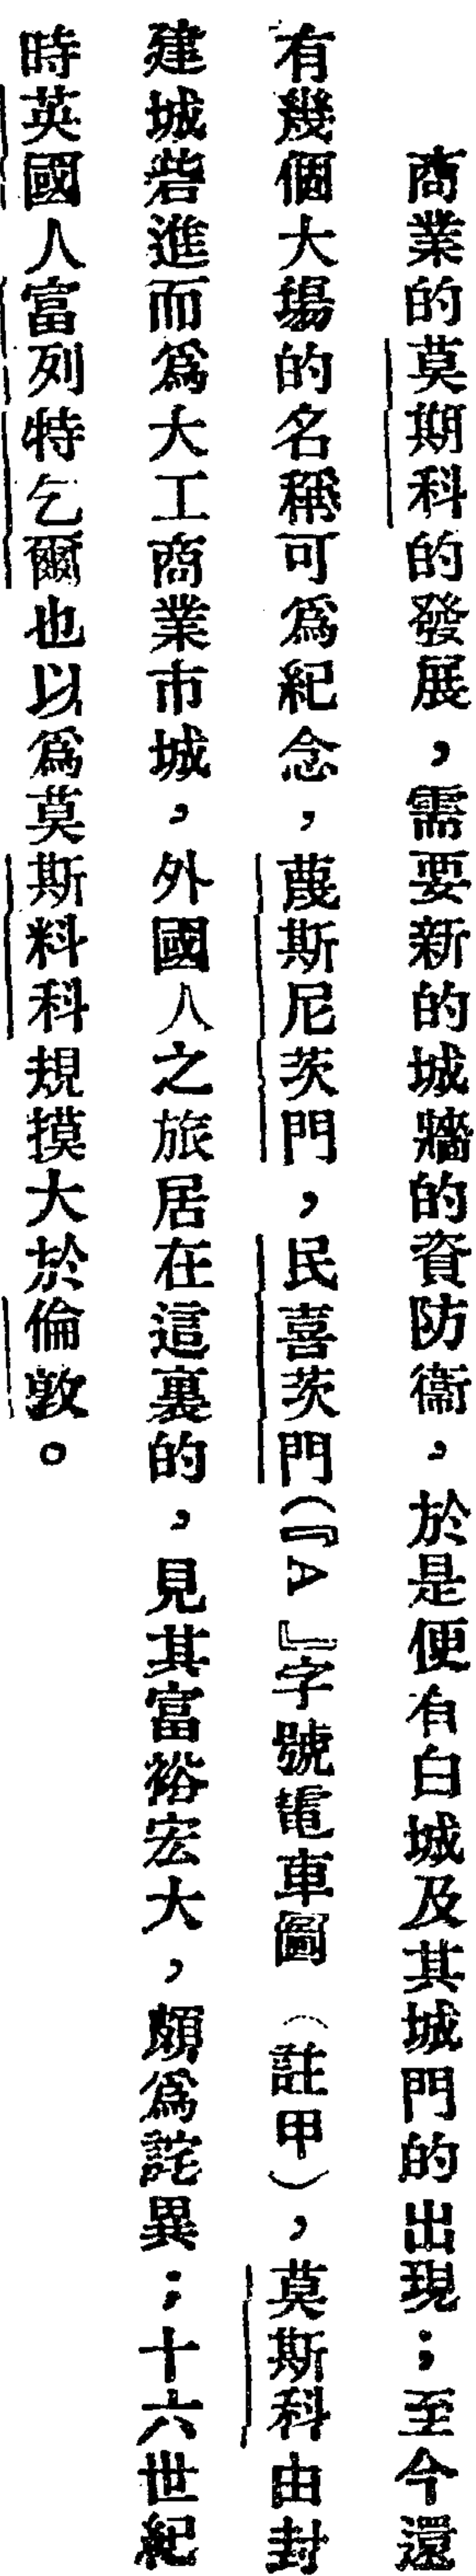 商業的莫期科的發展，需要新的城牆的資防衞，於是便有白城及其城門的出現；至今還
有幾個大場的名稱可爲紀念，蔑斯尼茨門，民喜茨門（『A』字號電車圖（註甲），莫斯科由封
建城砦進而爲大工商業市城，外國人之旅居在這裏的，見其富裕宏大，頗爲詫異；十六世紀
時英國人富列特乞爾也以爲莫斯料科規摸大於倫敦。